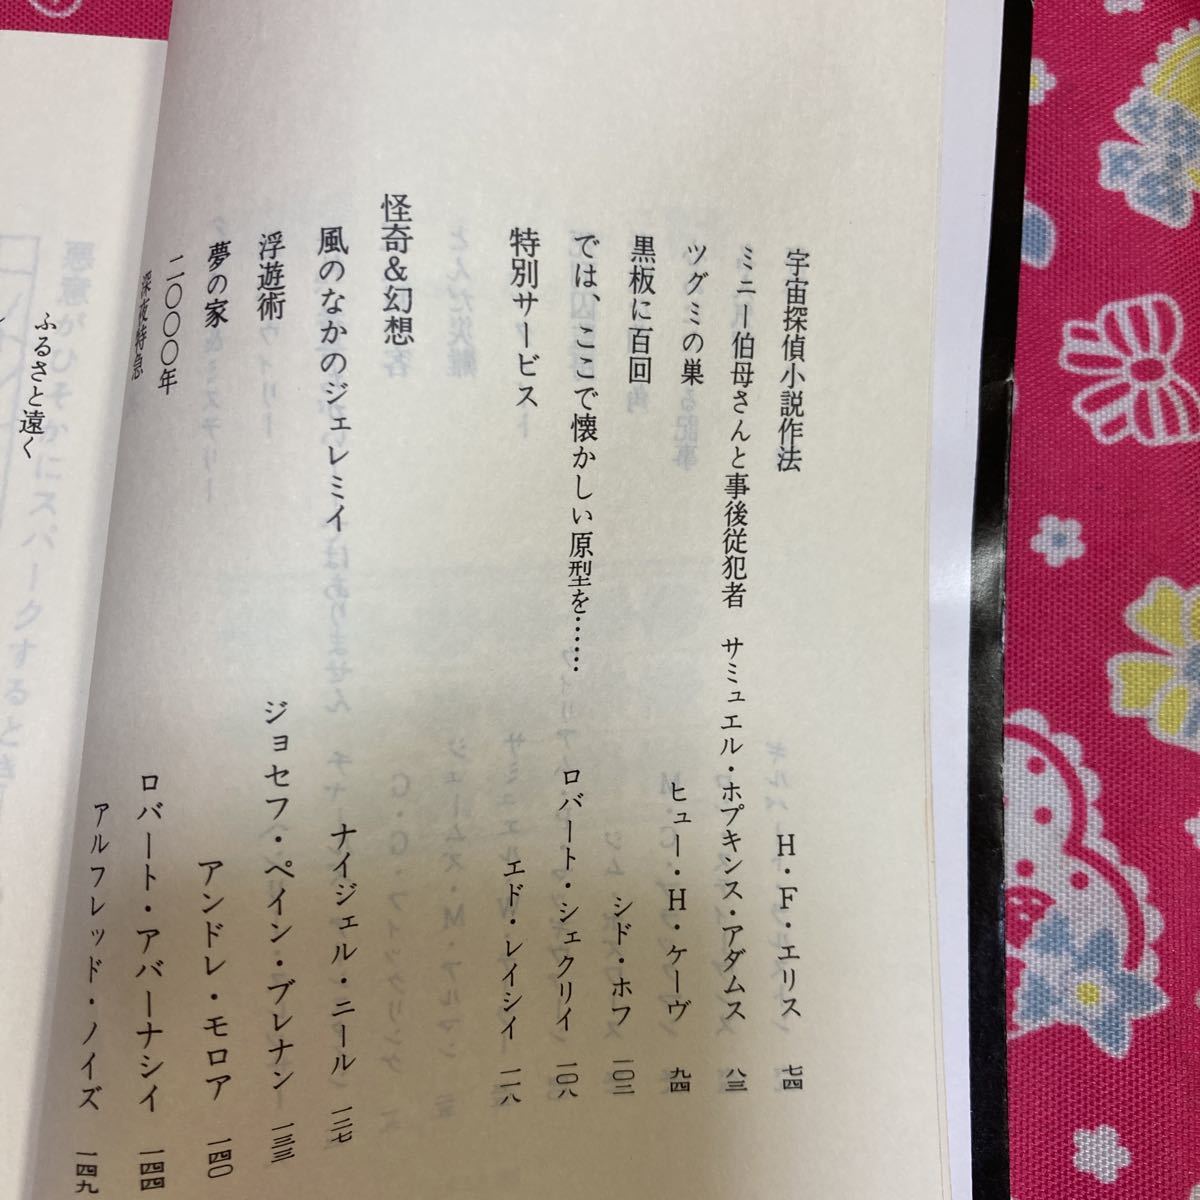 宇宙探偵小説作法 H・F・エリス 七四
ミニー伯母さんと事後従犯者 サミュエル・ホプキンス・アダムス 八三
ツグミの巣 ヒュー・H・ケーヴ 九四
黒板に百回 シド・ホフ 一〇二
では、ここで懐かしい原型を…… ロバート・シェクリイ 一〇八
特別サービス エド・レイシイ 一一八
怪奇&幻想
風のなかのジェレミイ ナイジェル・ニール 一二七
浮遊術 ジョセフ・ペイン・ブレナン 一三三
夢の家 アンドレ・モロア 一四〇
二〇〇〇年 ロバート・アバーナシイ 一四四
深夜特急 アルフレッド・ノイズ 一四九
ふるさと遠く